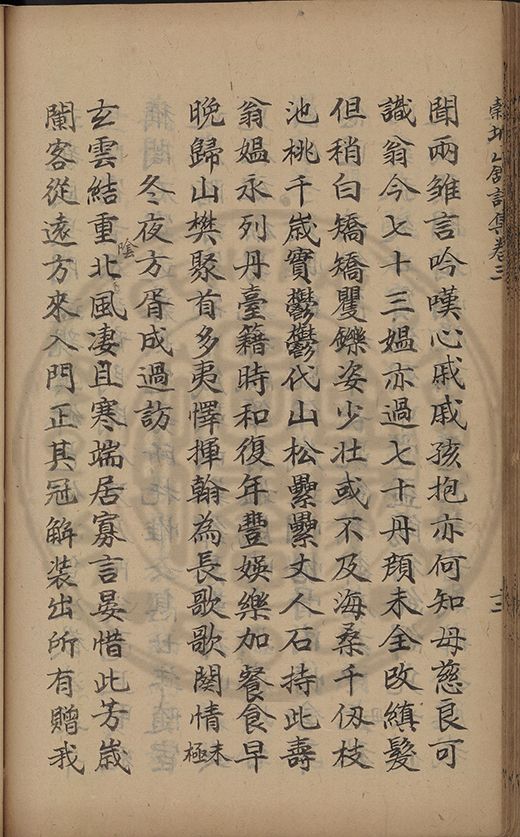 聞兩雏言吟嘆心戚戚孩抱亦何知母慈良可
識翁今七十三媪亦過七十丹顔未全改縝髮
但稍白矯矯矍鑠姿少壯或不及海桑千仭枝
池桃千歳實鬱鬱代山松纍纍丈人石持此壽
翁媪永列丹臺籍時和復年豐娛樂加餐食早
晚歸山樊聚首多夷懌揮翰為長歌歌闋情未極
冬夜方胥成過訪
玄雲結重陰北風凄且寒端居寡言晏惜此芳歳
闌客從遠方來入門正其冠解装出所有贈我